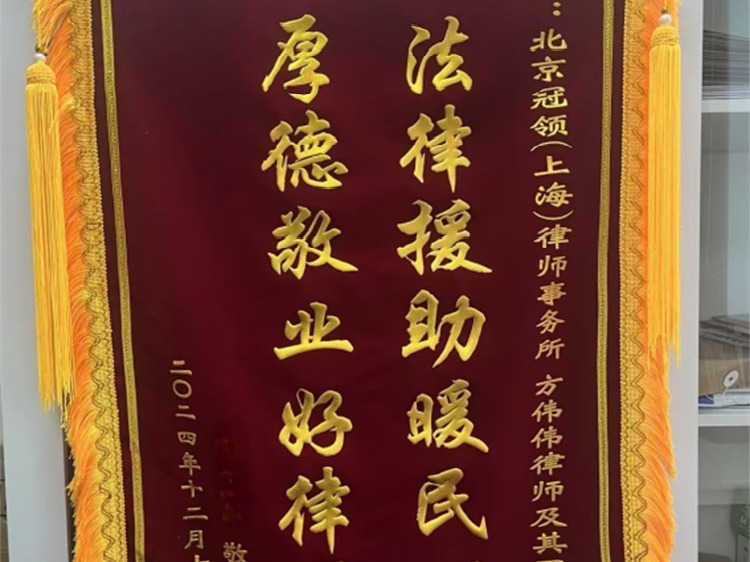 ：北京冠领(上海)律师事务所 方伟伟律师及其
法律援助暖民
厚德敬业好律
敬
二〇二四年十二月